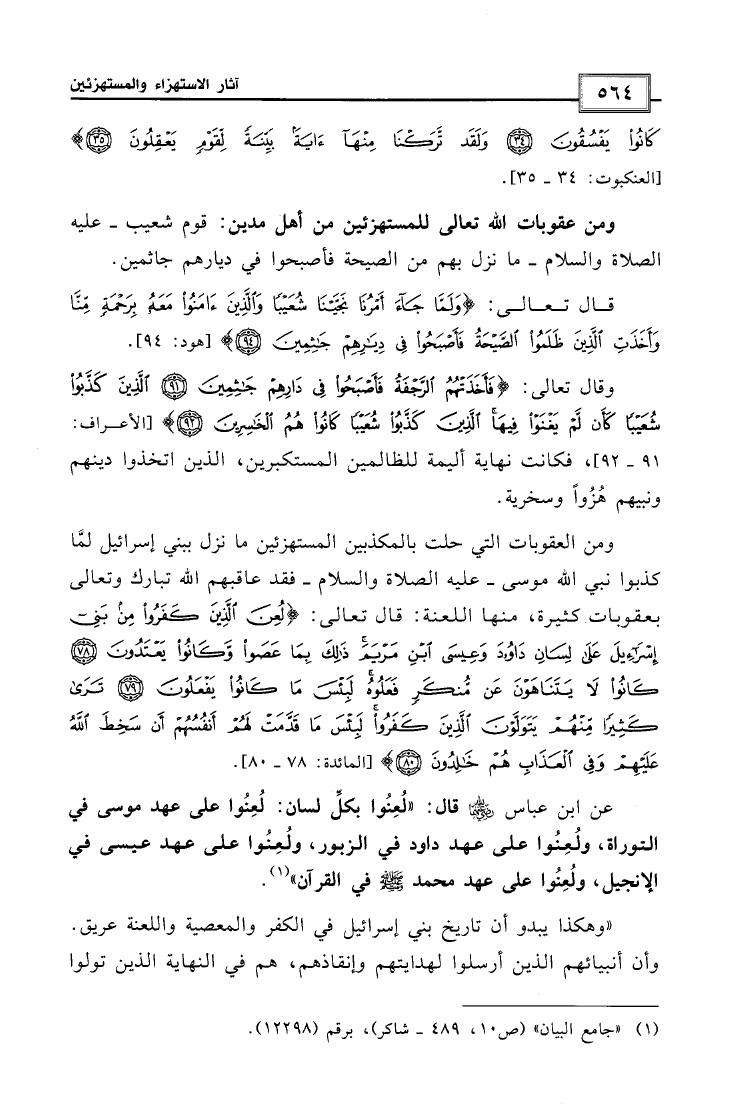 ٥٦٤
آثار الاستهزاء والمستهزئين
كَانُوا۟ يَفْسُقُونَ ﴿٣٤﴾ وَلَقَد تَّرَكْنَا مِنْهَآ ءَايَةًۢ بَيِّنَةً لِّقَوْمٍ يَعْقِلُونَ ﴿٣٥﴾﴾
[العنكبوت: ٣٤ ـ ٣٥].
ومن عقوبات الله تعالى للمستهزئين من أهل مدين: قوم شعيب ـ عليه
الصلاة والسلام ـ ما نزل بهم من الصيحة فأصبحوا في ديارهم جاثمين.
قـال تـعـالـى: ﴿وَلَمَّا جَآءَ أَمْرُنَا نَجَّيْنَا شُعَيْبًا وَٱلَّذِينَ ءَامَنُوا۟ مَعَهُۥ بِرَحْمَةٍ مِّنَّا
وَأَخَذَتِ ٱلَّذِينَ ظَلَمُوا۟ ٱلصَّيْحَةُ فَأَصْبَحُوا۟ فِى دِيَـٰرِهِمْ جَـٰثِمِينَ ﴿٩٤﴾﴾ [هود: ٩٤].
وقال تعالى: ﴿فَأَخَذَتْهُمُ ٱلرَّجْفَةُ فَأَصْبَحُوا۟ فِى دَارِهِمْ جَـٰثِمِينَ ﴿٩١﴾ ٱلَّذِينَ كَذَّبُوا۟
شُعَيْبًا كَأَن لَّمْ يَغْنَوْا۟ فِيهَا ۚ ٱلَّذِينَ كَذَّبُوا۟ شُعَيْبًا كَانُوا۟ هُمُ ٱلْخَـٰسِرِينَ ﴿٩٢﴾﴾ [الأعـراف:
٩١ ـ ٩٢]، فكانت نهاية أليمة للظالمين المستكبرين، الذين اتخذوا دينهم
ونبيهم هُزُواً وسخرية.
ومن العقوبات التي حلت بالمكذبين المستهزئين ما نزل ببني إسرائيل لمَّا
كذبوا نبي الله موسى ـ عليه الصلاة والسلام ـ فقد عاقبهم الله تبارك وتعالى
بعقوبات كثيرة، منها اللعنة: قال تعالى: ﴿لُعِنَ ٱلَّذِينَ كَفَرُوا۟ مِنۢ بَنِىٓ
إِسْرَٰٓءِيلَ عَلَىٰ لِسَانِ دَاوُۥدَ وَعِيسَى ٱبْنِ مَرْيَمَ ۚ ذَٰلِكَ بِمَا عَصَوا۟ وَّكَانُوا۟ يَعْتَدُونَ ﴿٧٨﴾
كَانُوا۟ لَا يَتَنَاهَوْنَ عَن مُّنكَرٍ فَعَلُوهُ ۚ لَبِئْسَ مَا كَانُوا۟ يَفْعَلُونَ ﴿٧٩﴾ تَرَىٰ
كَثِيرًا مِّنْهُمْ يَتَوَلَّوْنَ ٱلَّذِينَ كَفَرُوا۟ ۚ لَبِئْسَ مَا قَدَّمَتْ لَهُمْ أَنفُسُهُمْ أَن سَخِطَ ٱللَّهُ
عَلَيْهِمْ وَفِى ٱلْعَذَابِ هُمْ خَـٰلِدُونَ ﴿٨٠﴾﴾ [المائدة: ٧٨ ـ ٨٠].
عن ابن عباس رضي الله عنهما قال: «لُعِنُوا بكلِّ لسان: لُعِنُوا على عهد موسى في
التوراة، ولُعِنُوا على عهد داود في الزبور، ولُعِنُوا على عهد عيسى في
الإنجيل، ولُعِنُوا على عهد محمد ﷺ في القرآن»(١).
«وهكذا يبدو أن تاريخ بني إسرائيل في الكفر والمعصية واللعنة عريق.
وأن أنبيائهم الذين أرسلوا لهدايتهم وإنقاذهم، هم في النهاية الذين تولوا
(١) «جامع البيان» (ص١٠، ٤٨٩ ـ شاكر)، برقم (١٢٢٩٨).